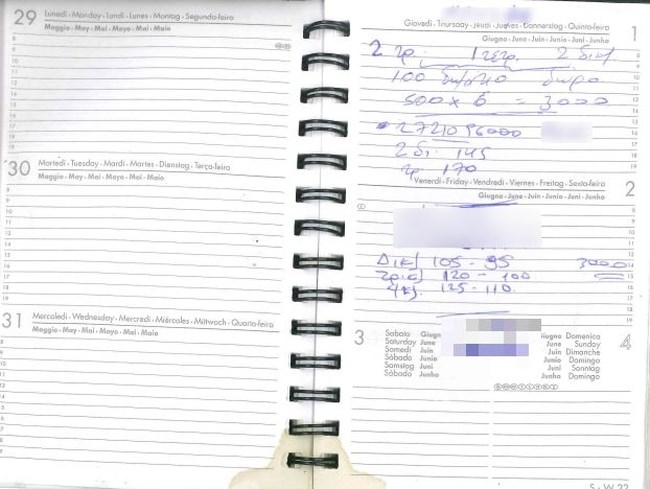 29 Lunedì - Monday - Lundi - Lunes - Montag - Segunda-feira
Maggio - May - Mai - Mayo - Mai - Maio
30 Martedì - Tuesday - Mardi - Martes - Dienstag - Terça-feira
Maggio - May - Mai - Mayo - Mai - Maio
31 Mercoledì - Wednesday - Mercredi - Miércoles - Mittwoch - Quarta-feira
Maggio - May - Mai - Mayo - Mai - Maio
Giovedì - Thursday - Jeudi - Jueves - Donnerstag - Quinta-feira 1
Giugno - June - Juin - Junio - Juni - Junho
2 τρ. 1 τετρ. 2 δικ
100 δωρο
500 x 6 = 3000
2721096000
2 δι. 145
τρ 170
Venerdì - Friday - Vendredi - Viernes - Freitag - Sexta-feira 2
Giugno - June - Juin - Junio - Juni - Junho
Δικ) 105 - 95 3000
τρικ) 120 - 100
4κ). 125 - 110.
3 Sabato Giugn
Saturday June
Samedi Juin
Sábado Junio
Samstag Juni
Sábado Junho
Giugno Domenica 4
June Sunday
Juin Dimanche
Junio Domingo
Juni Sonntag
Junho Domingo
S - W 22